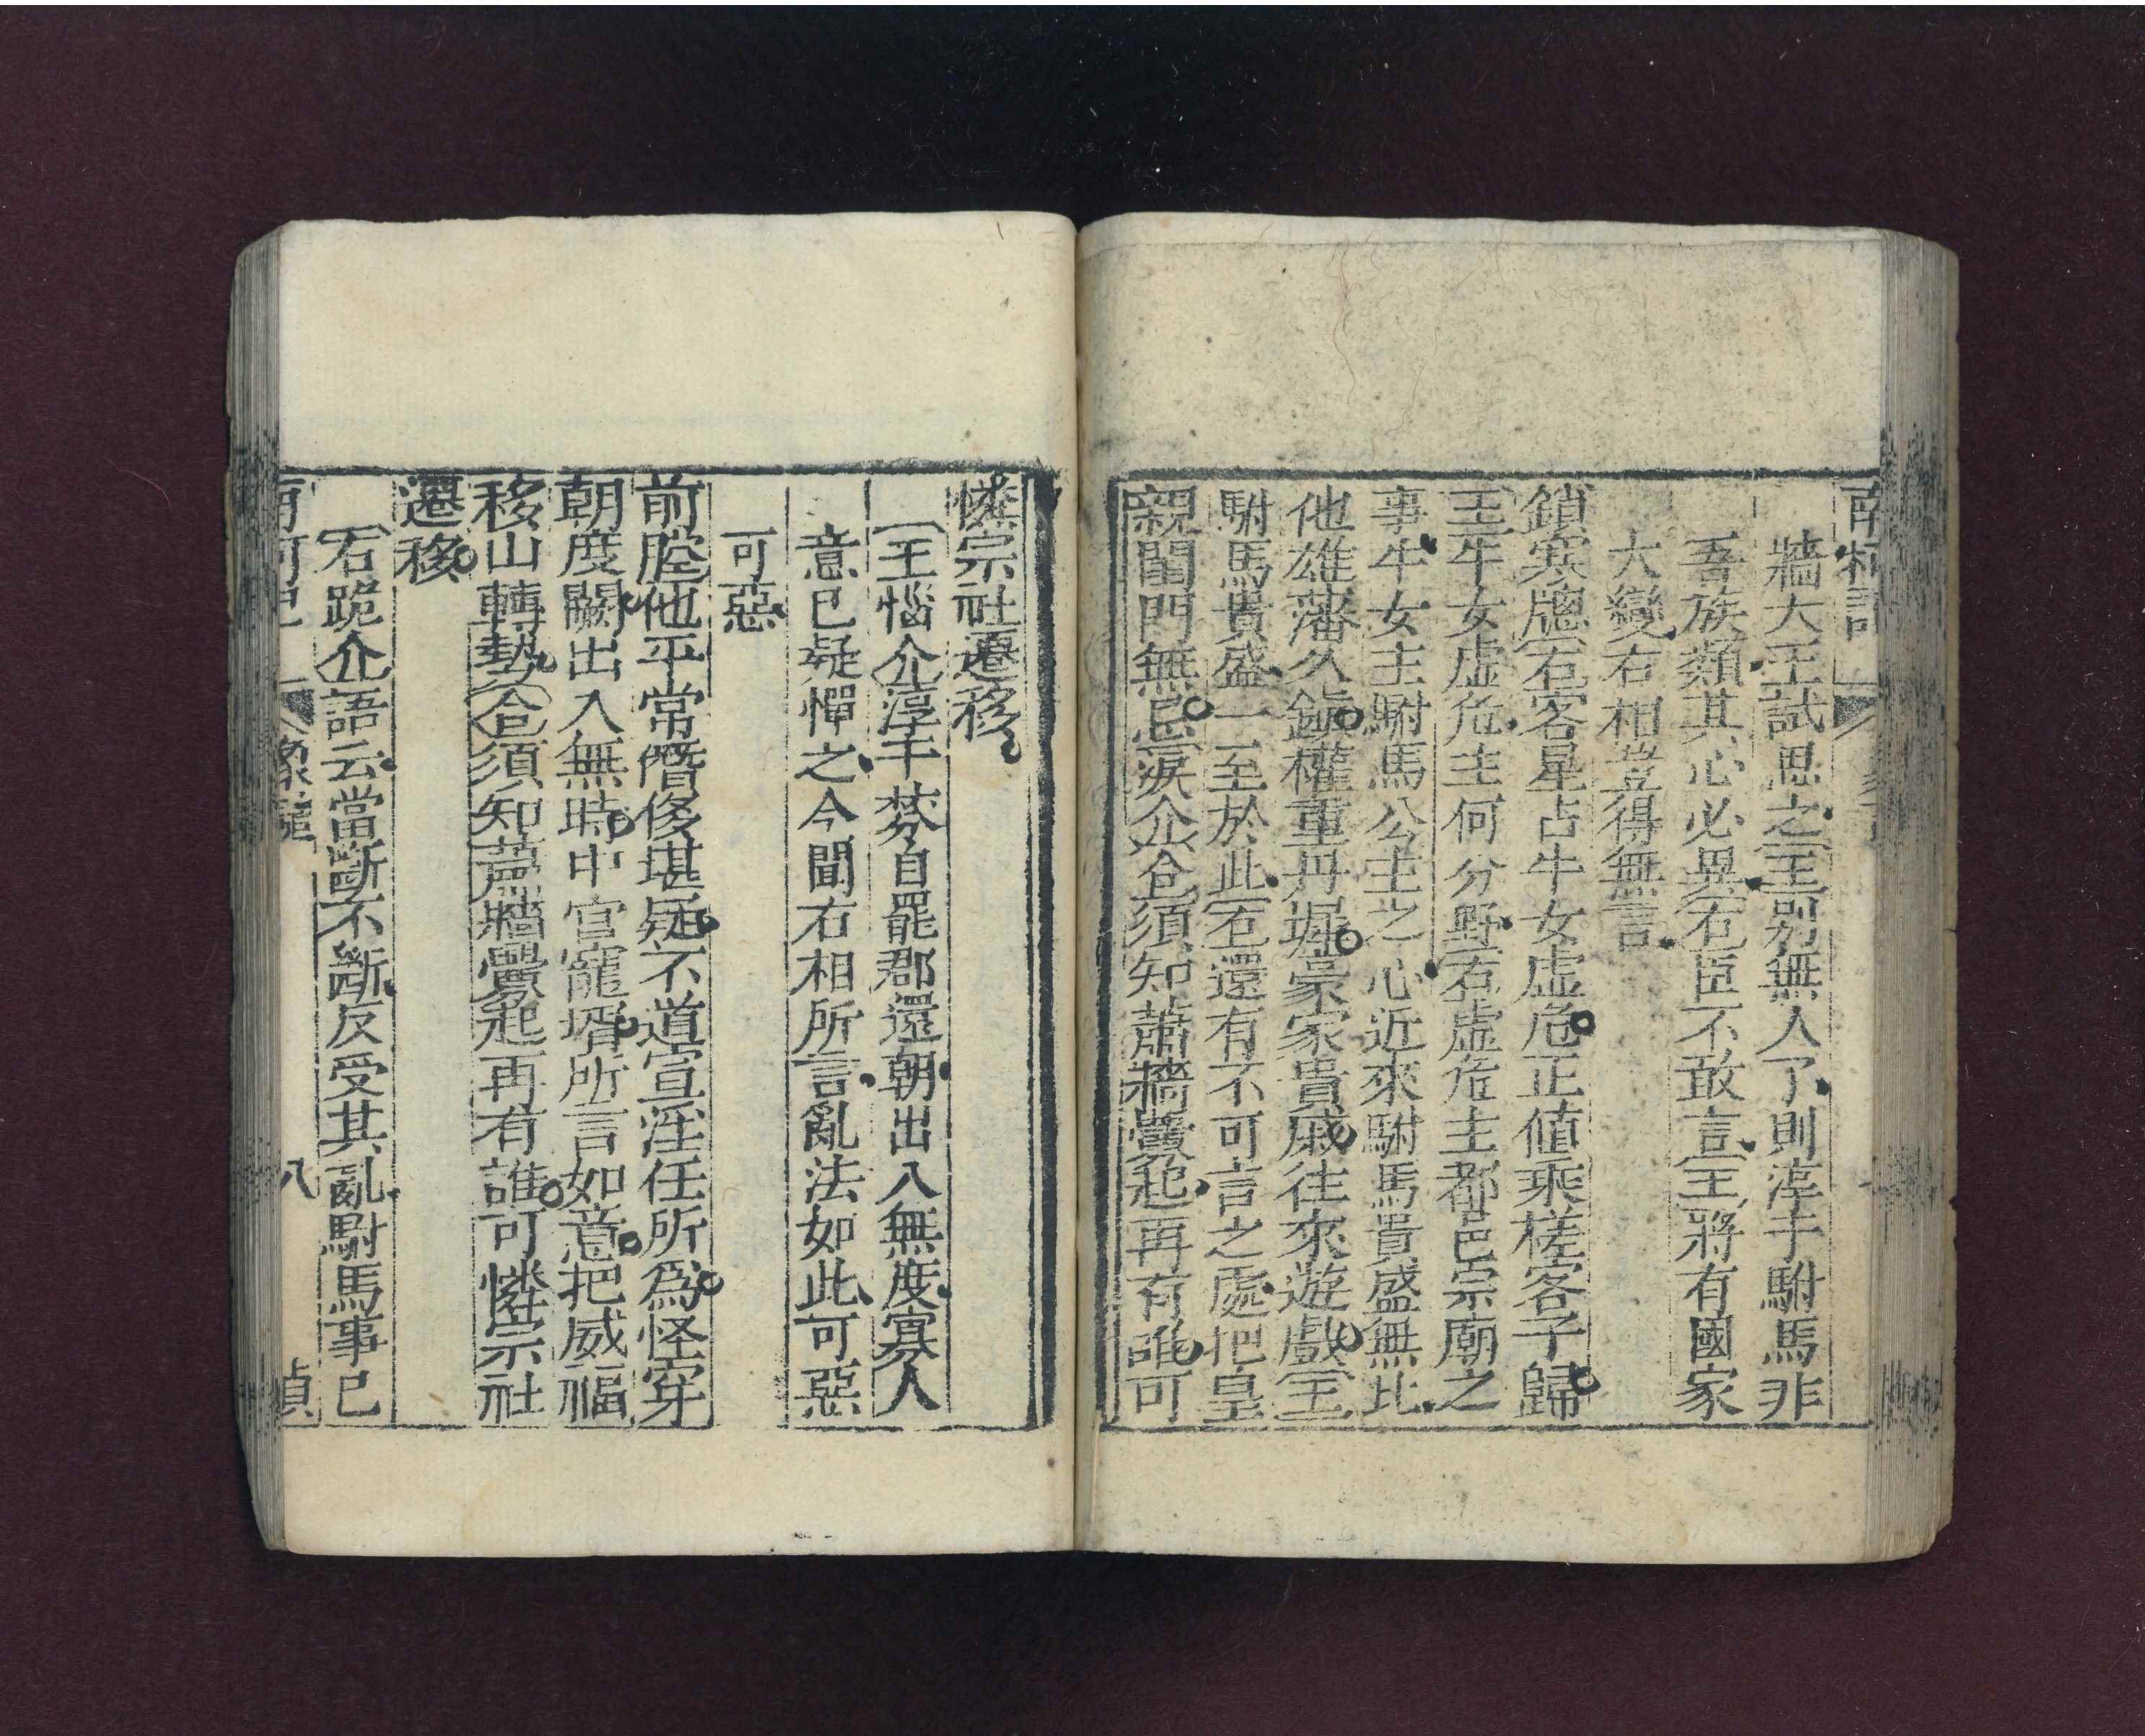 南柯記
牆大王試思之〔王〕別無人了則淳于駙馬非
吾族類其心必異〔右〕臣不敢言〔王〕將有國家
大變右相豈得無言
鎖寒牕〔右〕客星占牛女虛危正值乘槎客子歸
〔王〕牛女虛危主何分野〔右〕虛危主都邑宗廟之
事牛女主駙馬公主之心近來駙馬貴盛無比
他雄藩久鎮權重丹墀豪家貴戚往來遊戲〔王〕
駙馬貴盛一至於此〔右〕還有不可言之處把皇
親閨門無忌〔淚介〕〔合〕須知蕭牆釁起再有誰可
憐宗社遷移
〔王惱介〕淳于棼自罷郡還朝出入無度寡人
意已疑憚之今聞右相所言亂法如此可惡
可惡
前腔他平常僭侈堪疑不道宣淫任所爲怪穿
朝度闕出入無時中宮寵壻所言如意把威福
移山轉勢〔合〕須知蕭牆釁起再有誰可憐宗社
遷移
〔右跪介〕語云當斷不斷反受其亂駙馬事已
南柯記 象譴 八 貞